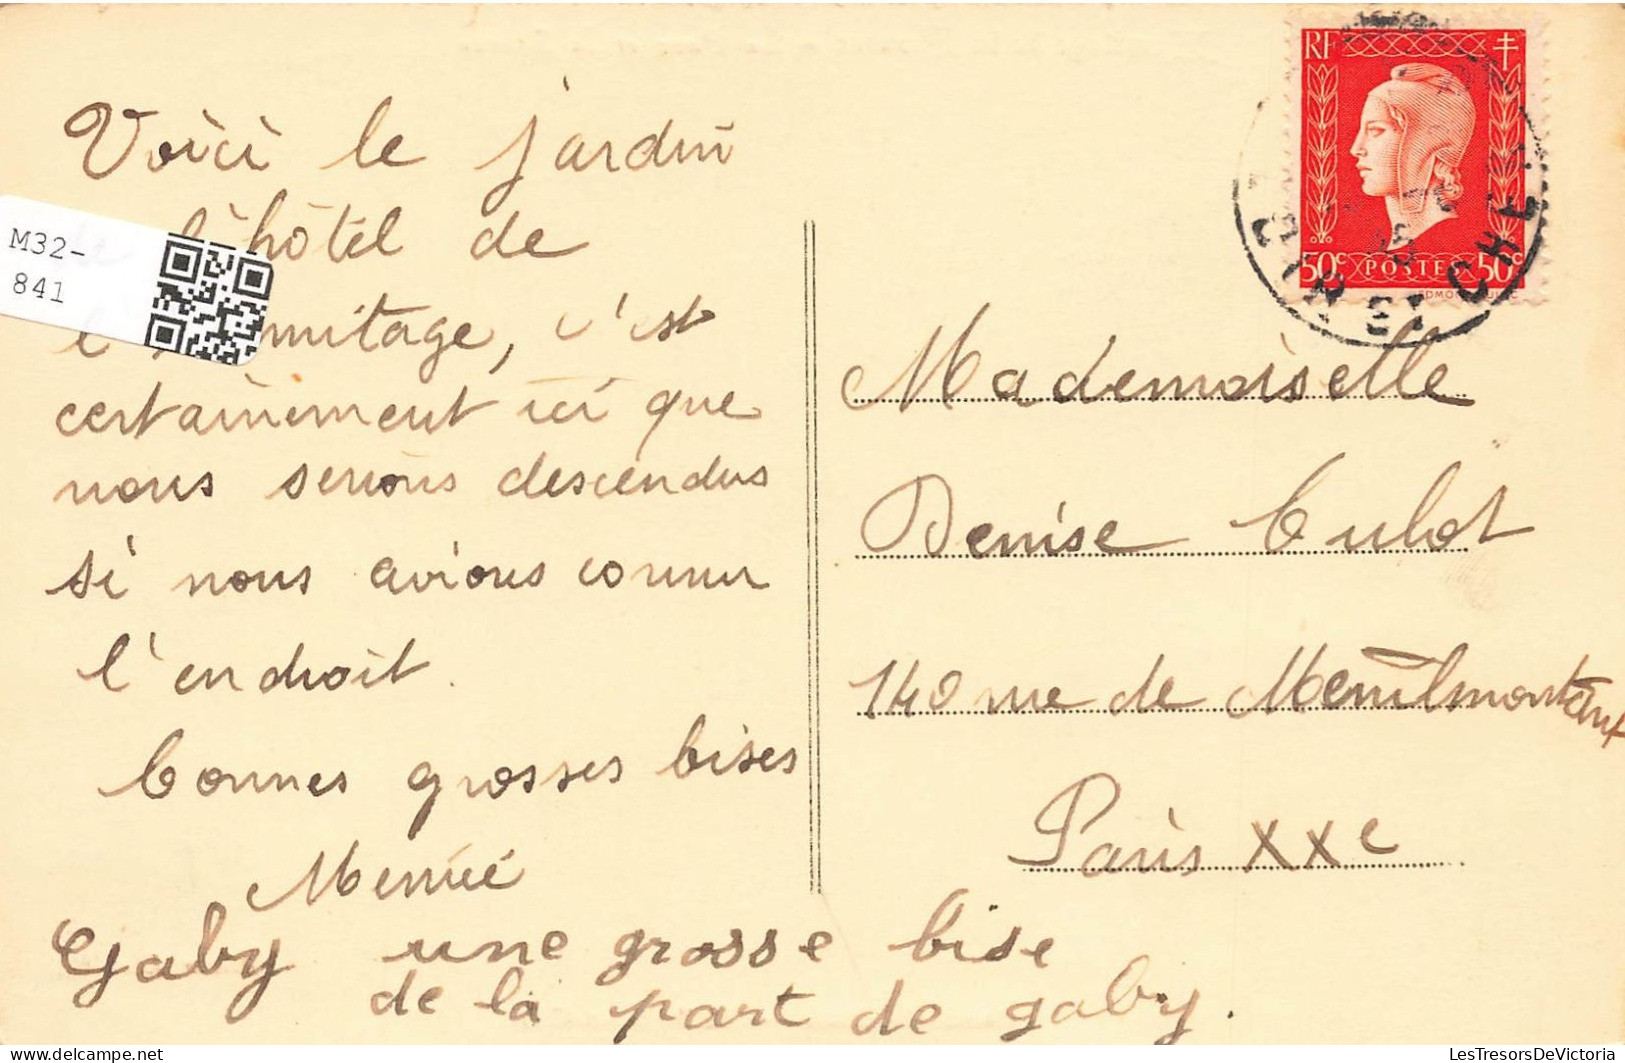 Voici le jardin
de l'hôtel de
l'Ermitage, c'est
certainement ici que
nous serions descendus
si nous avions connu
l'endroit.
Bonnes grosses bises
Gaby une grosse bise
de la part de gaby.
M32-
841
RF
50c POSTES 50c
Mademoiselle
Denise Culot
140 rue de Menilmontant
Paris XXe
LesTresorsDeVictoria